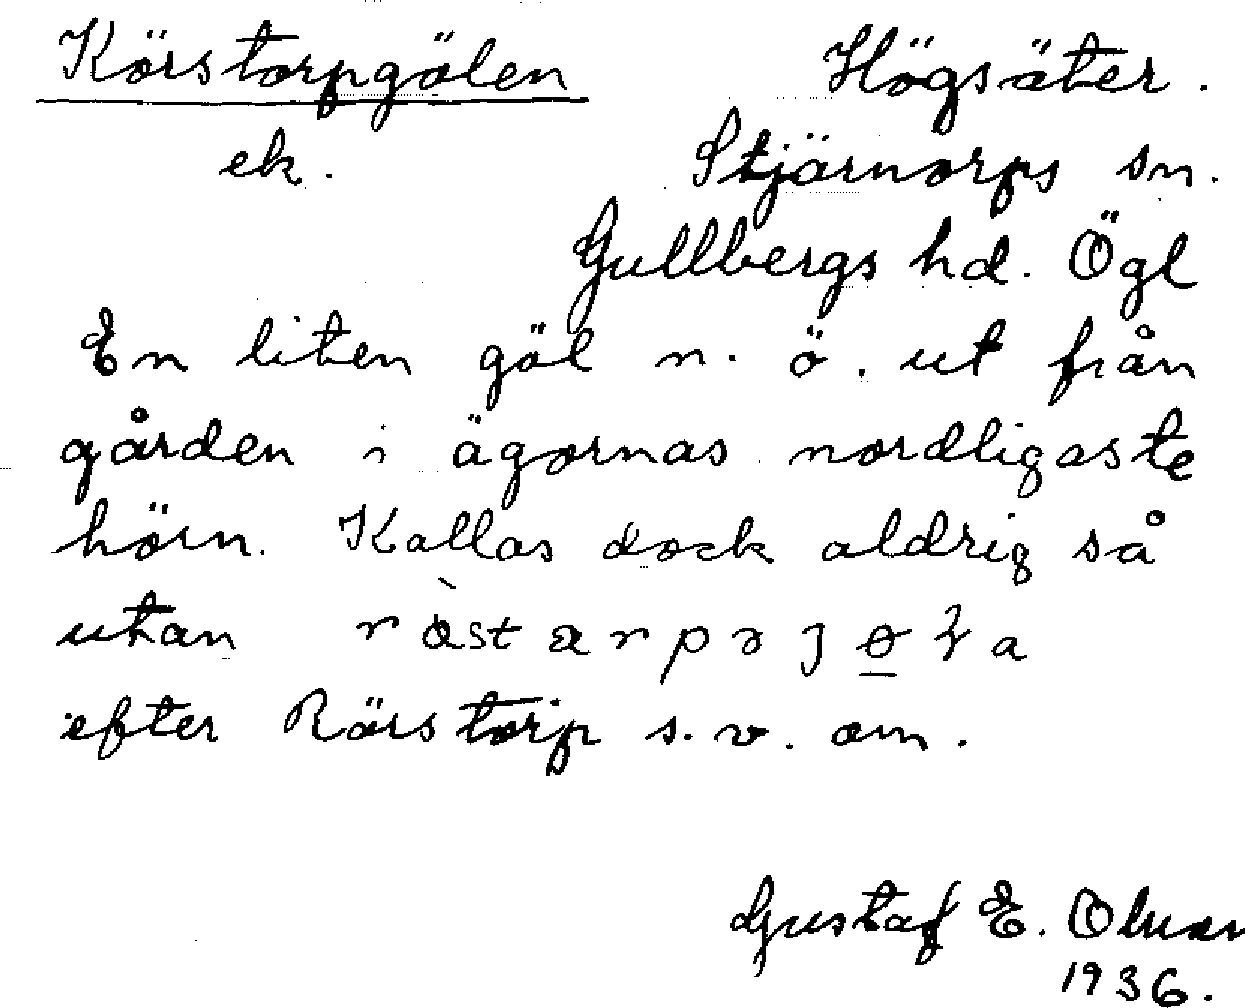 Körstorpgölen Högsäter.
ek. Stjärnorps sn.
Gullbergs hd. Ögl
En liten göl n. ö. ut från
gården i ägornas nordligaste
hörn. Kallas dock aldrig så
utan
efter Rörstorp s. v. om.
Gustaf E.
1936.